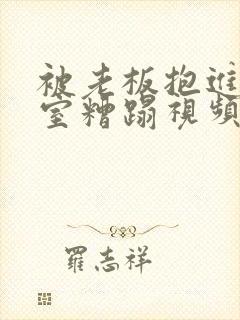 被老板抱進
室糟蹋視頻
羅志祥